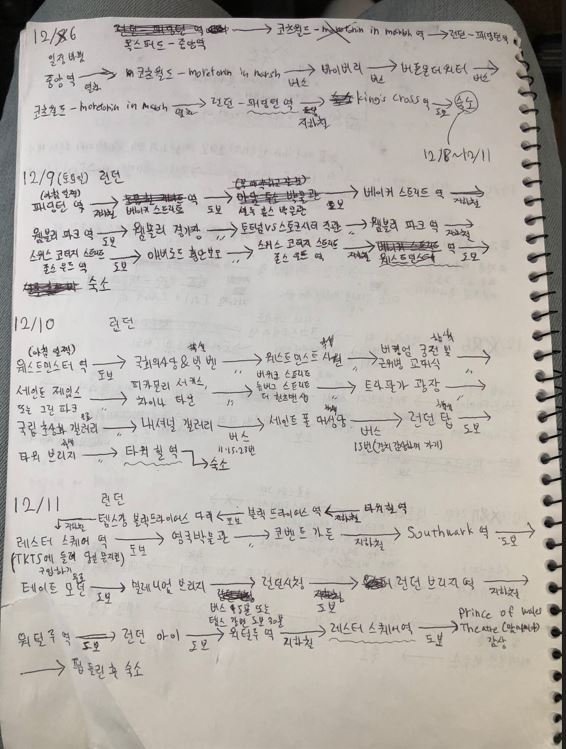 12/6 옥스퍼드-중앙역 → 코츠월드-moretonin in marsh 역 → 런던-패딩턴 역
일정 바뀜
중앙역 → 기차 코츠월드-moretonin in marsh → 버스 바이버리 → 버스 버튼온더워터 → 버스
코츠월드-moretonin in marsh → 기차 런던-패딩턴 역 → 지하철 King's Cross역 → 도보 숙소
12/8~12/11
12/9 (토요일) 런던
(아침 일찍)
패딩턴 역 → 지하철 베이커 스트리트 역 → 도보 셜록 홈즈 박물관 → 도보 베이커 스트리트 역 → 지하철
웸블리 파크 역 → 도보 웸블리 경기장 → 〃 토트넘 VS 스토크시티 직관 → 〃 웸블리 파크 역 → 지하철
스위스 코티지 스테이트 존스 우드 역 → 도보 애비로드 횡단보도 → 〃 스위스 코티지 스테이트 존스 우드 역 → 지하철 웨스트민스터 역 → 도보
숙소
12/10 런던
(아침 일찍)
웨스트민스터 역 → 도보 국회의사당 & 빅벤 → 〃 웨스트민스트 사원 → 〃 버킹엄 궁전 및 근위병 교대식 →
세인트 제임스 또는 그린 파크 → 〃 피카딜리 서커스, 차이나 타운 → 〃 버워크 스트리트 → 〃 트라팔가 광장 →
국립 초상화 갤러리 → 〃 내셔널 갤러리 → 버스 11.15.23번 세인트 폴 대성당 → 버스 15번 런던 탑 → 도보
타워 브리지 → 〃 타워 힐 역 → 숙소
12/11 런던
템스강 블랙프라이어스 다리 ← 도보 블랙 프라이어스 역 ← 지하철 타워힐 역
레스터 스퀘어 역 → 도보 영국박물관 → 〃 코벤트 가든 → 지하철 Southwark 역 → 도보
(TKTS에 들려 구입하기)
테이트 모던 → 도보 밀레니엄 브리지 → 버스 약 5분 또는 템스 강변 도보 30분 런던시청 → 도보 런던 브리지 역 → 지하철
워털루 역 → 도보 런던 아이 → 도보 워털루 역 → 지하철 레스터 스퀘어역 → 도보 Prince of wales Theatre 감상
→ 펍 들린 후 숙소